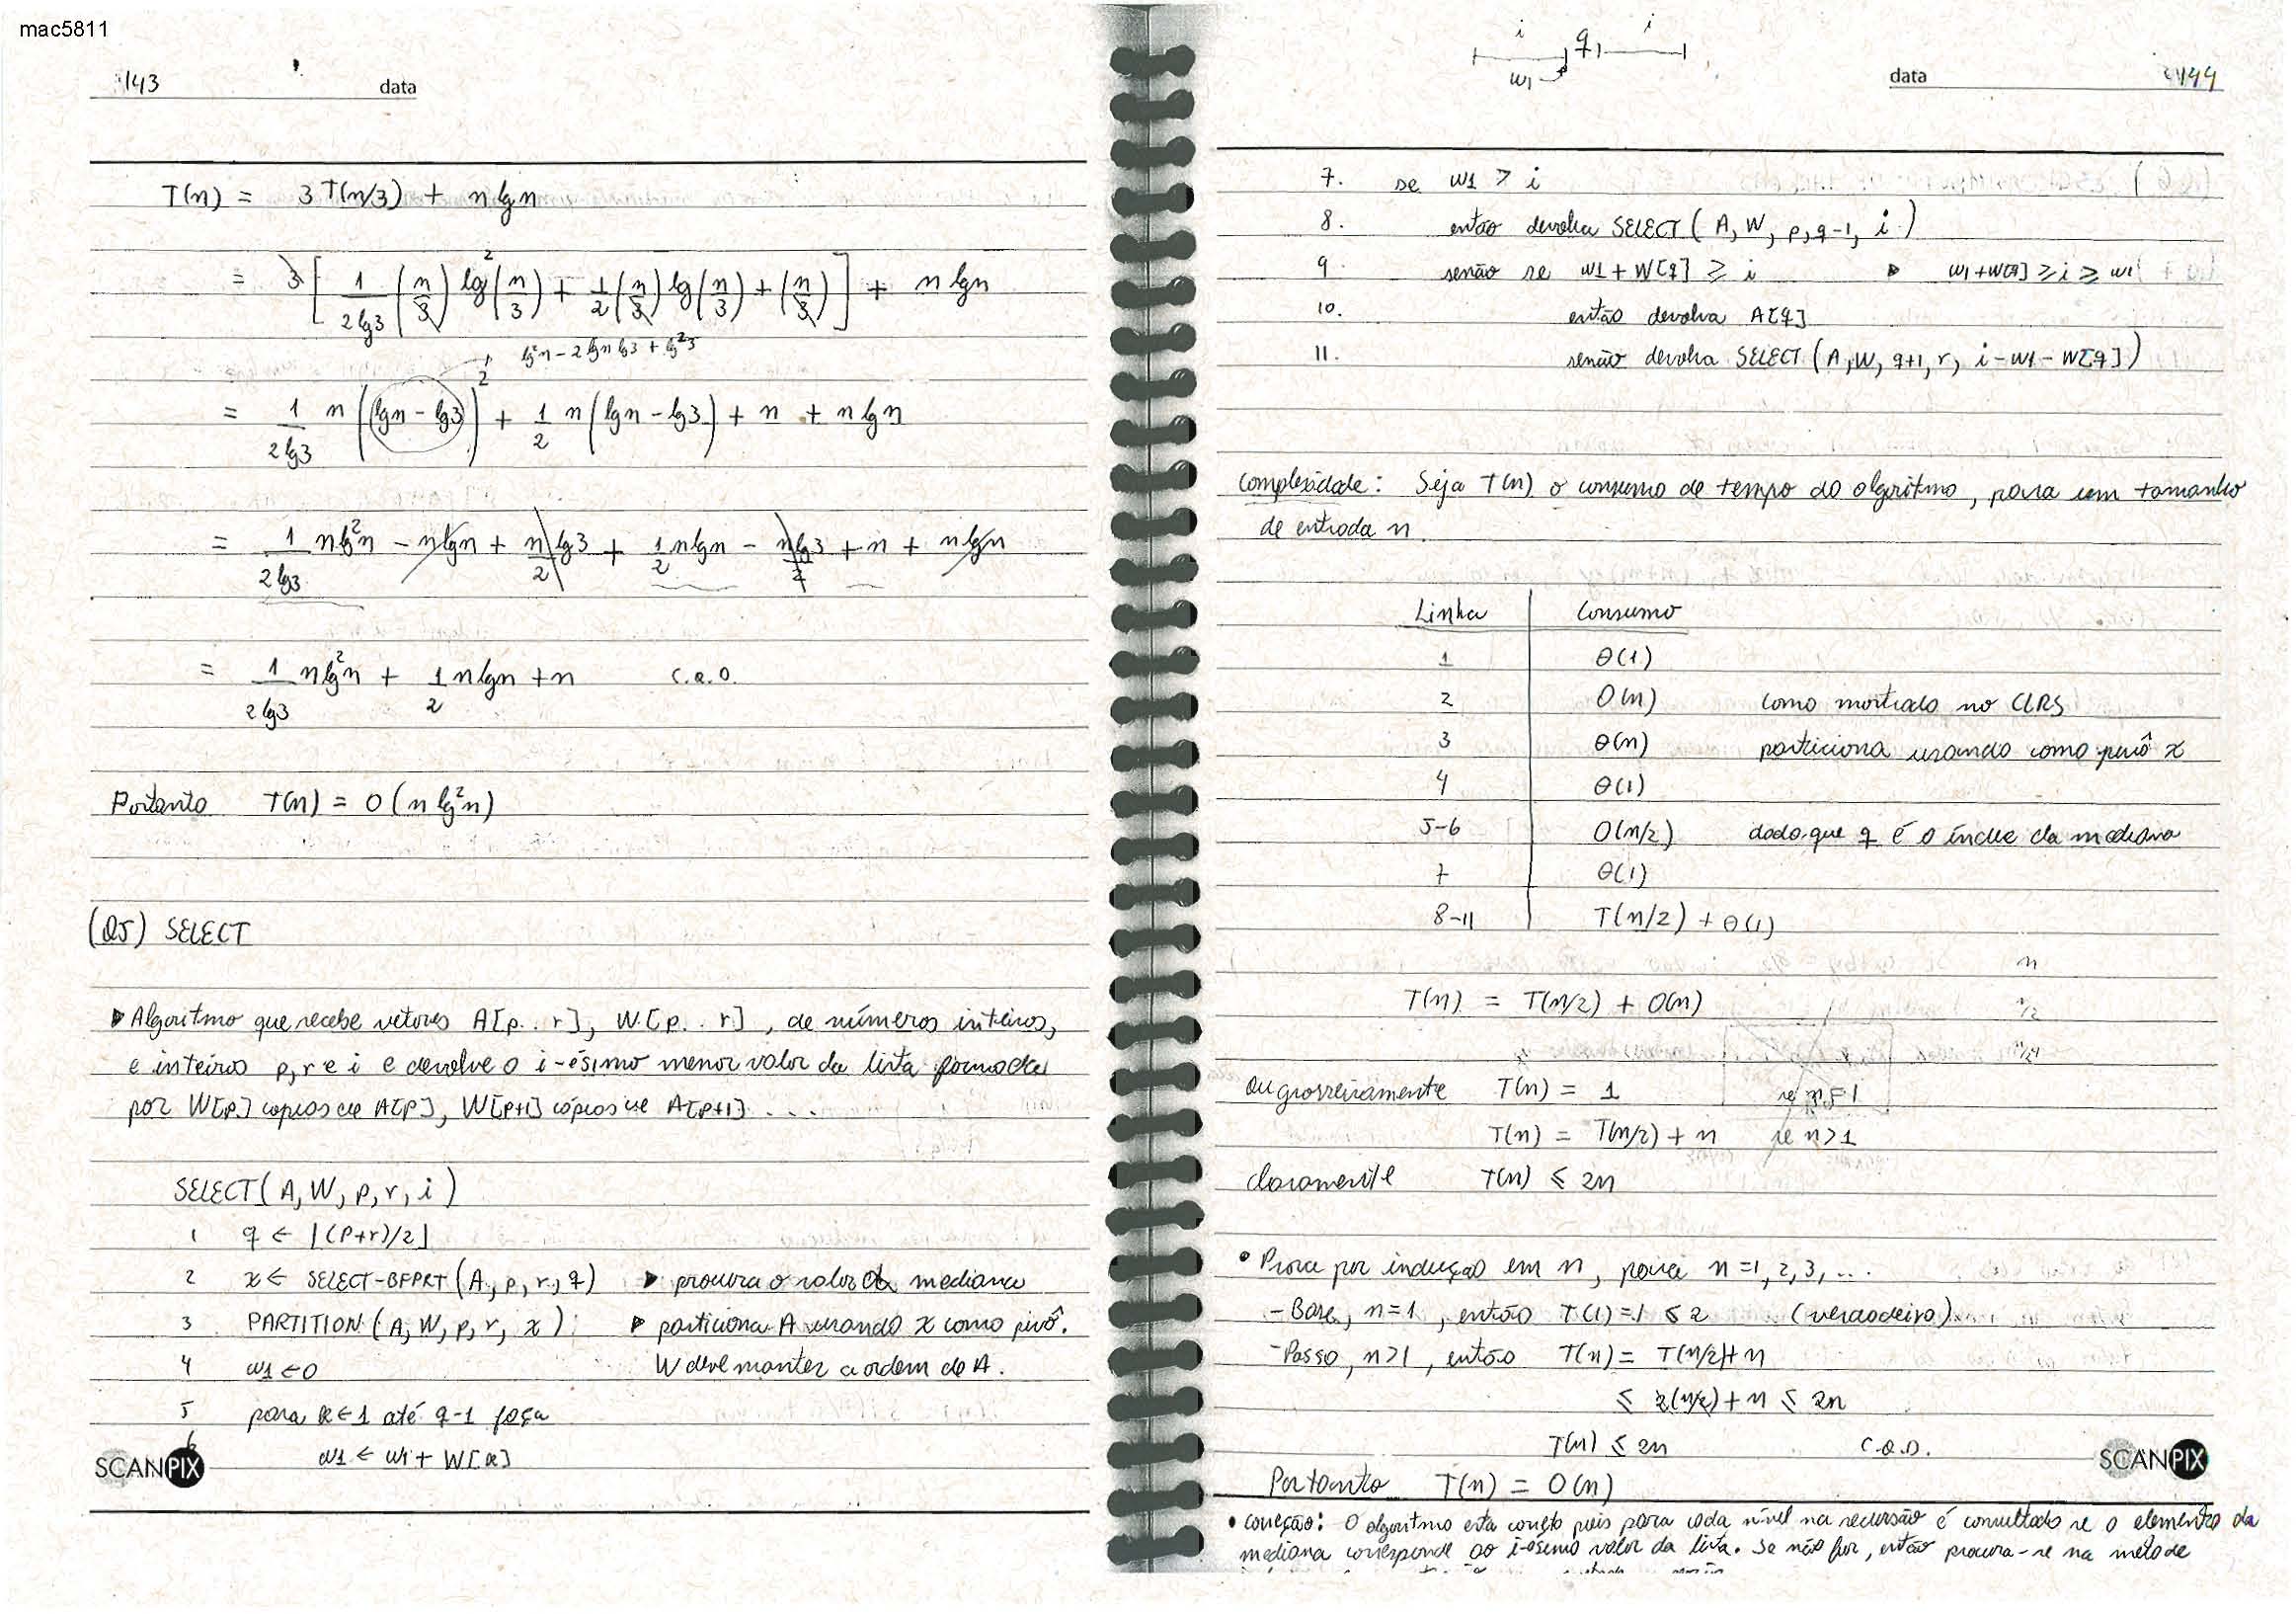 mac5811
143 data
T(n) = 3T(n/3) + n lg n
= 3[1/(2 lg 3) (n/3) lg²(n/3) + 1/2 (n/3) lg(n/3) + (n/3)] + n lg n
lg²n - 2 lg n lg 3 + lg²3
= 1/(2 lg 3) n (lg n - lg 3)² + 1/2 n (lg n - lg 3) + n + n lg n
= 1/(2 lg 3) n lg²n - n lg n + n/2 lg 3 + 1/2 n lg n - n lg 3/2 + n + n lg n
= 1/(2 lg 3) n lg²n + 1/2 n lg n + n C.Q.D.
Portanto T(n) = O(n lg²n)
(Q5) SELECT
▶ Algoritmo que recebe vetores A[p..r], W[p..r], de números inteiros,
e inteiros p, r e i e devolve o i-ésimo menor valor da lista formada
por W[p] cópias de A[p], W[p+1] cópias de A[p+1] ...
SELECT(A, W, p, r, i)
1 q ← ⌊(p+r)/2⌋
2 x ← SELECT-BFPRT(A, p, r, q) ▶ procura o valor da mediana
3 PARTITION(A, W, p, r, x) ▶ particiona A usando x como pivô.
4 w1 ← 0 W deve manter a ordem de A.
5 para k ← 1 até q-1 faça
6 w1 ← w1 + W[k]
SCANPIX
i q i
w1
data 144
7. se w1 > i
8. então devolva SELECT(A, W, p, q-1, i)
9. senão se w1 + W[q] ≥ i ▶ w1 + W[q] ≥ i ≥ w1
10. então devolva A[q]
11. senão devolva SELECT(A, W, q+1, r, i-w1-W[q])
Complexidade: Seja T(n) o consumo de tempo do algoritmo, para um tamanho
de entrada n.
Linha Consumo
1 Θ(1)
2 O(n) como mostrado no CLRS
3 Θ(n) particiona usando como pivô x
4 Θ(1)
5-6 O(n/2) dado que q é o índice da mediana
7 Θ(1)
8-11 T(n/2) + Θ(1)
n
T(n) = T(n/2) + O(n)
n/2
n/4
ou grosseiramente T(n) = 1 se n=1
T(n) = T(n/2) + n se n>1
claramente T(n) ≤ 2n
• Prova por indução em n, para n=1, 2, 3, ...
- Base, n=1, então T(1)=1 ≤ 2 (verdadeiro)
- Passo, n>1, então T(n) = T(n/2)+n
≤ 2(n/2)+n ≤ 2n
T(n) ≤ 2n C.Q.D.
SCANPIX
Portanto T(n) = O(n)
• Correção: O algoritmo esta correto pois para cada nível na recursão é consultado se o elemento da
mediana corresponde ao i-ésimo valor da lista. Se não for, então procura-se na metade